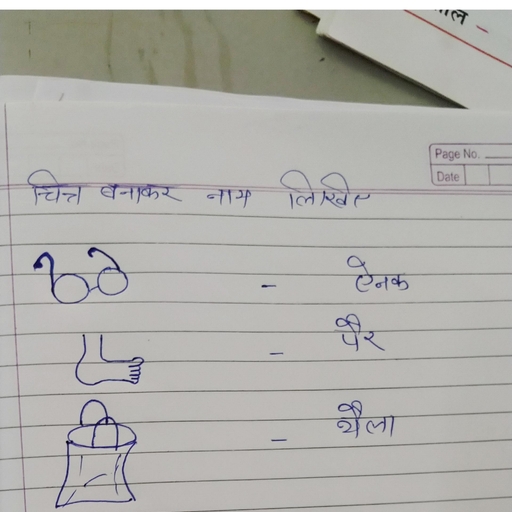 ाल -
Page No.
Date
चित्र बनाकर नाम लिखिए
- ऐनक
- पैर
- थैला